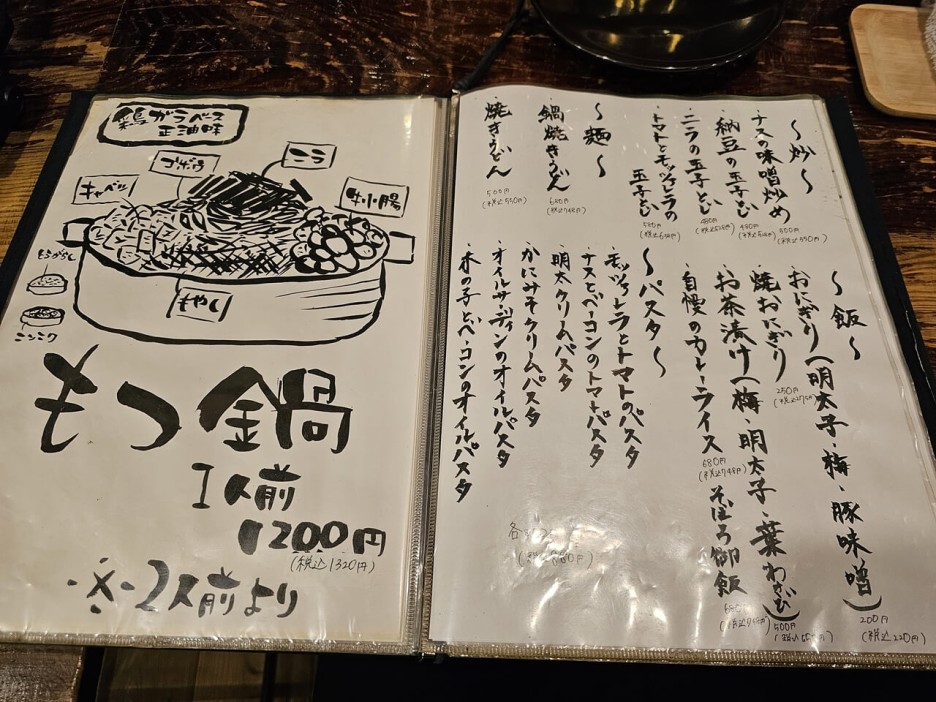 鶏ガラベース
正油味
ニラ
ゴボウ
キャベツ
小腸
もやし
とうがらし
ニンニク
もつ鍋
1人前
1200円
(税込1320円)
※2人前より
～炒～
ナスの味噌炒め
500円
(税込550円)
納豆の玉子とじ
480円
ニラの玉子とじ
480円
トマトとモッツァレラの
玉子とじ
～麺～
鍋焼きうどん
680円
(税込748円)
焼きうどん
500円
(税込550円)
～飯～
おにぎり(明太子・梅・豚味噌)
200円
(税込220円)
焼おにぎり
250円
(税込275円)
お茶漬け(梅・明太子・葉わさび)
500円
(税込550円)
自慢のカレーライス
680円
(税込748円)
そぼろ御飯
～パスタ～
モッツァレラとトマトのパスタ
ナスとベーコンのトマトパスタ
明太クリームパスタ
かにみそクリームパスタ
オイルサーディンのオイルパスタ
木の子とベーコンのオイルパスタ
各